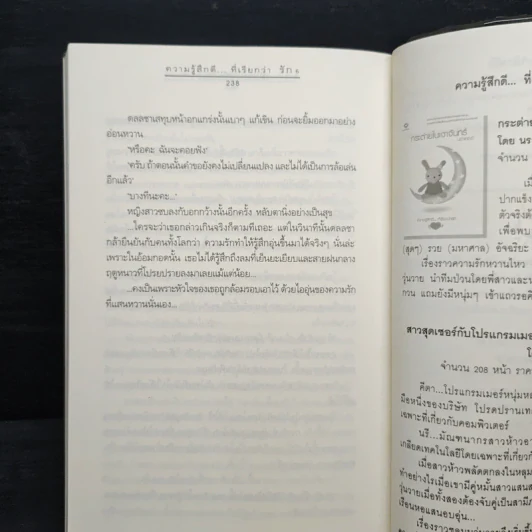 ความรู้สึกดี... ที่เรียกว่า รัก ๑
238
ตลลชาเสทุบหน้าอกแกร่งนั้นเบาๆ แก้เขิน ก่อนจะยิ้มออกมาอย่าง
อ่อนหวาน
'หรือคะ ฉันจะคอยฟัง'
'ครับ ถ้าตอนนั้นคำขอยังคงไม่เปลี่ยนแปลง และไม่ได้เป็นการล้อเล่น
อีกแล้ว'
'บางทีนะคะ...'
หญิงสาวซบลงกับอกกว้างนั้นอีกครั้ง หลับตานิ่งอย่างเป็นสุข
...ใครจะว่าเธอกล่าวเกินจริงก็ตามที่เถอะ แต่ในวินาทีนั้นตลลชา
กล้ายืนยันกับคนทั้งโลกว่า ความรักทำให้รู้สึกอุ่นขึ้นมาได้จริงๆ นั่นล่ะ
เพราะในอ้อมกอดนั้น เธอไม่ได้รู้สึกถึงลมที่เย็นยะเยียบและสายฝนกลาง
ฤดูหนาวที่โปรยปรายลงมาเลยแม้แต่น้อย...
...คงเป็นเพราะหัวใจของเธอถูกล้อมรอบเอาไว้ ด้วยไออุ่นของความรัก
ที่แสนหวานนั่นเอง...
ความรู้สึกดี... ที่
กระต่ายในเงาจันทร์
กระต่าย
โดย นร
จำนวน
เมื่
ปากแข็ง
ตัวจริงด้
เพื่อพบ
(สุดๆ) รวย (มหาศาล) อัจฉริยะ
เรื่องราวความรักหวานไหว
วุ่นวาย นำทีมป่วนโดยพี่สาวและน
กวน แถมยังมีหนุ่มๆ เข้าแถวรอคี
สาวสุดเซอร์กับโปรแกรมเมอ
โ
จำนวน 208 หน้า ราค
คีตา...โปรแกรมเมอร์หนุ่มหล
มือหนึ่งของบริษัท โปรดปรานเท
เฉพาะที่เกี่ยวกับคอมพิวเตอร์
นรี...มัณฑนากรสาวห้าวอา
เกลียดเทคโนโลยีโดยเฉพาะที่เกี่ยวกั
เมื่อสาวห้าวพลัดตกลงในหลุม
ทำอย่างไรเมื่อเขามีคู่หมั้นสาวแสนส
วุ่นวายเมื่อทั้งสองต้องจับคู่เป็นสามีภ
เรือนหอแสนอบอุ่น...